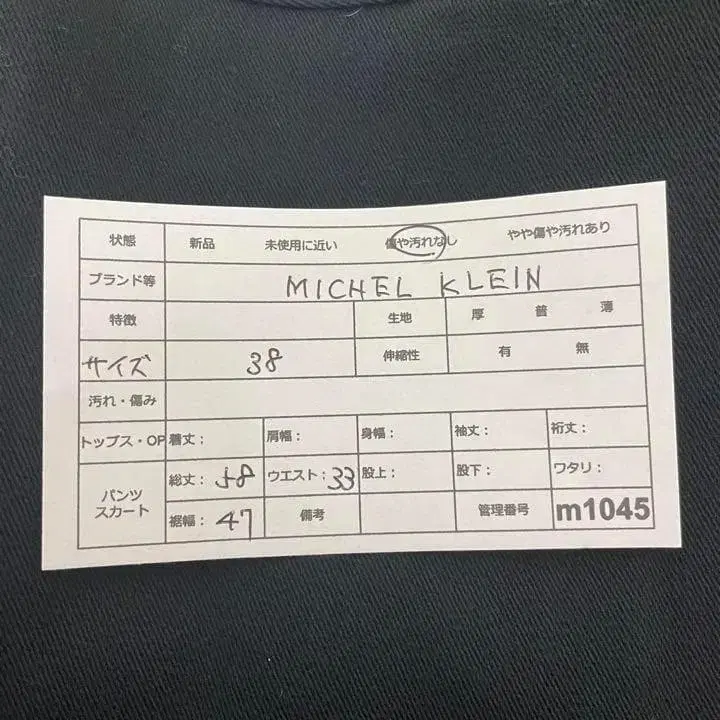 状態 新品 未使用に近い 傷や汚れなし やや傷や汚れあり
ブランド等 MICHEL KLEIN
特徴 生地 厚 普 薄
サイズ 38 伸縮性 有 無
汚れ・傷み
トップス・OP 着丈: 肩幅: 身幅: 袖丈: 裄丈:
パンツ スカート 総丈: 58 ウエスト: 33 股上: 股下: ワタリ:
裾幅: 47 備考 管理番号 m1045